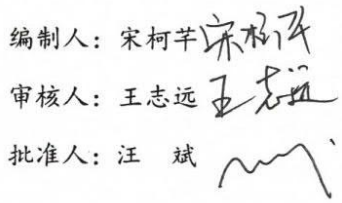 编制人：宋柯芊 宋柯芊
审核人：王志远 王志远
批准人：汪 斌